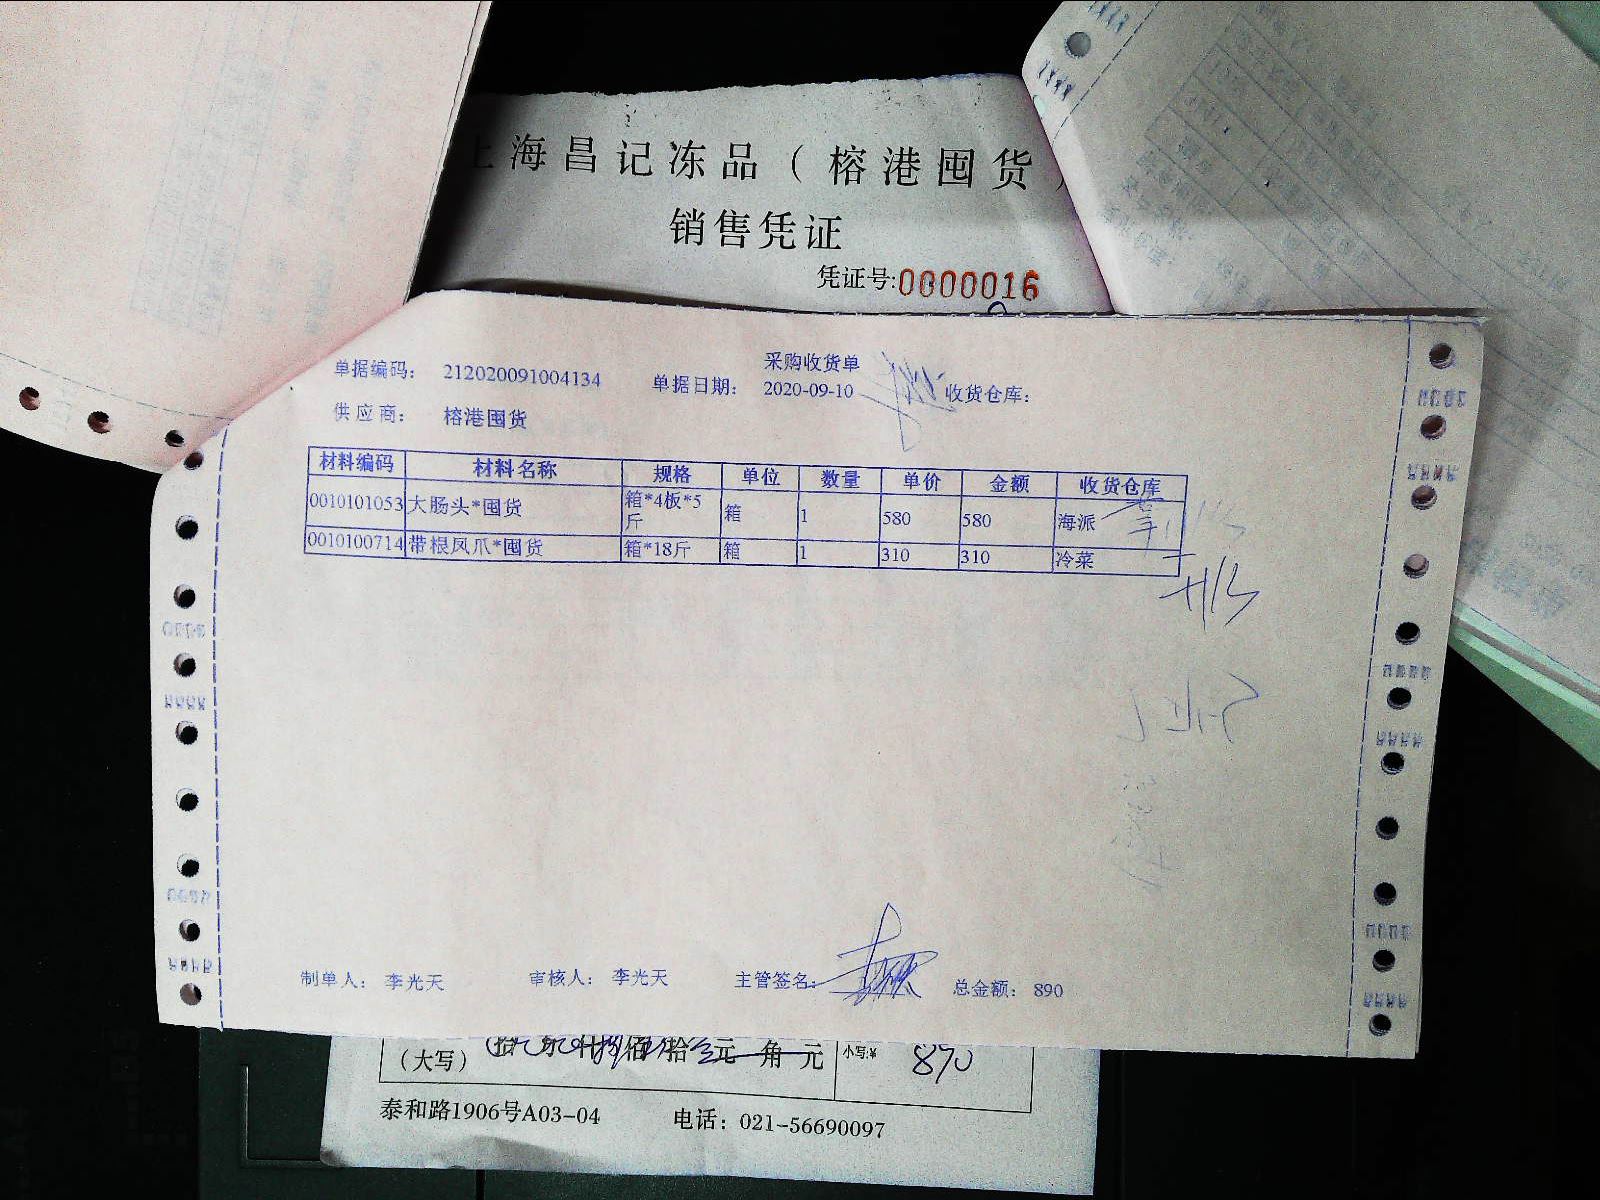 上海昌记冻品（榕港囤货）
销售凭证
凭证号:0000016
采购收货单
单据编码： 212020091004134 单据日期： 2020-09-10 收货仓库：
供应商： 榕港囤货
材料编码 材料名称 规格 单位 数量 单价 金额 收货仓库
0010101053 大肠头*囤货 箱*4板*5斤 箱 1 580 580 海派
0010100714 带根凤爪*囤货 箱*18斤 箱 1 310 310 冷菜
制单人： 李光天 审核人： 李光天 主管签名： 总金额： 890
（大写） 佰 拾 元 角 元 小写:¥ 890
泰和路1906号A03-04 电话：021-56690097